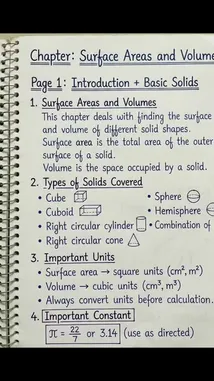 Chapter: Surface Areas and Volume
Page 1: Introduction + Basic Solids
1. Surface Areas and Volumes
This chapter deals with finding the surface
and volume of different solid shapes.
Surface area is the total area of the outer
surface of a solid.
Volume is the space occupied by a solid.
2. Types of Solids Covered
• Cube • Sphere
• Cuboid • Hemisphere
• Right circular cylinder • Combination of
• Right circular cone
3. Important Units
• Surface area → square units (cm², m²)
• Volume → cubic units (cm³, m³)
• Always convert units before calculation.
4. Important Constant
π = 22/7 or 3.14 (use as directed)